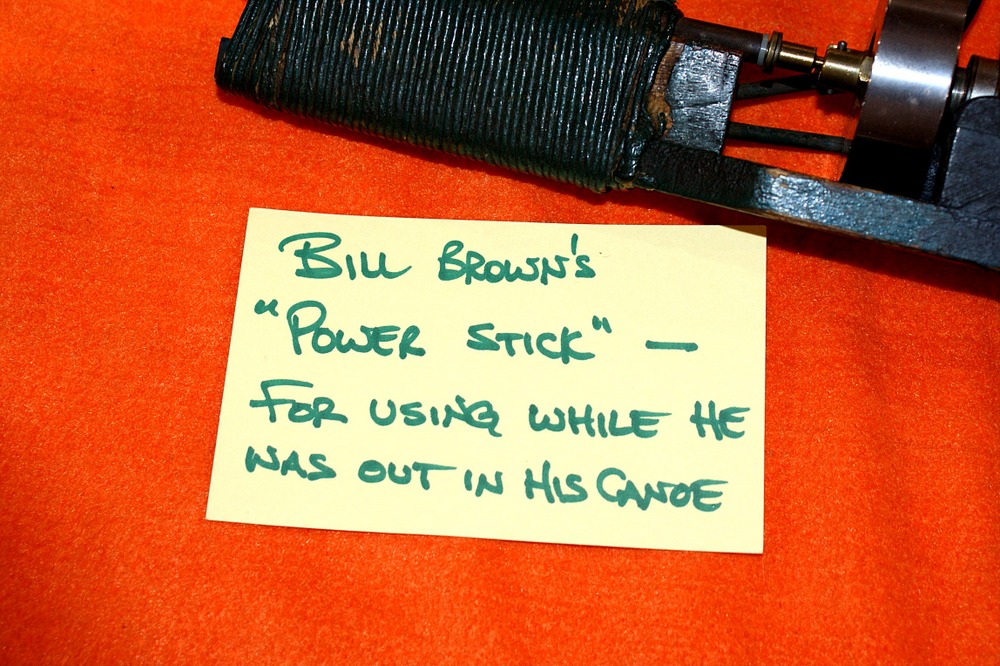 BILL BROWN'S
"POWER STICK" —
FOR USING WHILE HE
WAS OUT IN HIS CANOE